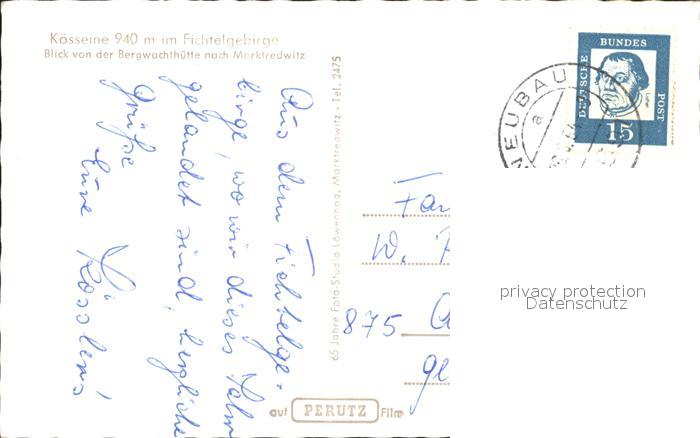 Kösseine 940 m im Fichtelgebirge
Blick von der Bergwachthütte nach Marktredwitz
Aus dem Fichtelge-
birge, wo wir dieses Jahr
gelandet sind, herzliche
Grüße
Eure Kösslers!
65 Jahre Foto-Studio Löwenhag, Marktredwitz · Tel. 2475
auf PERUTZ Film
DEUTSCHE
BUNDES
POST
Luther
15
NEUBAU
a
Fam
W.
875
privacy protection
Datenschutz